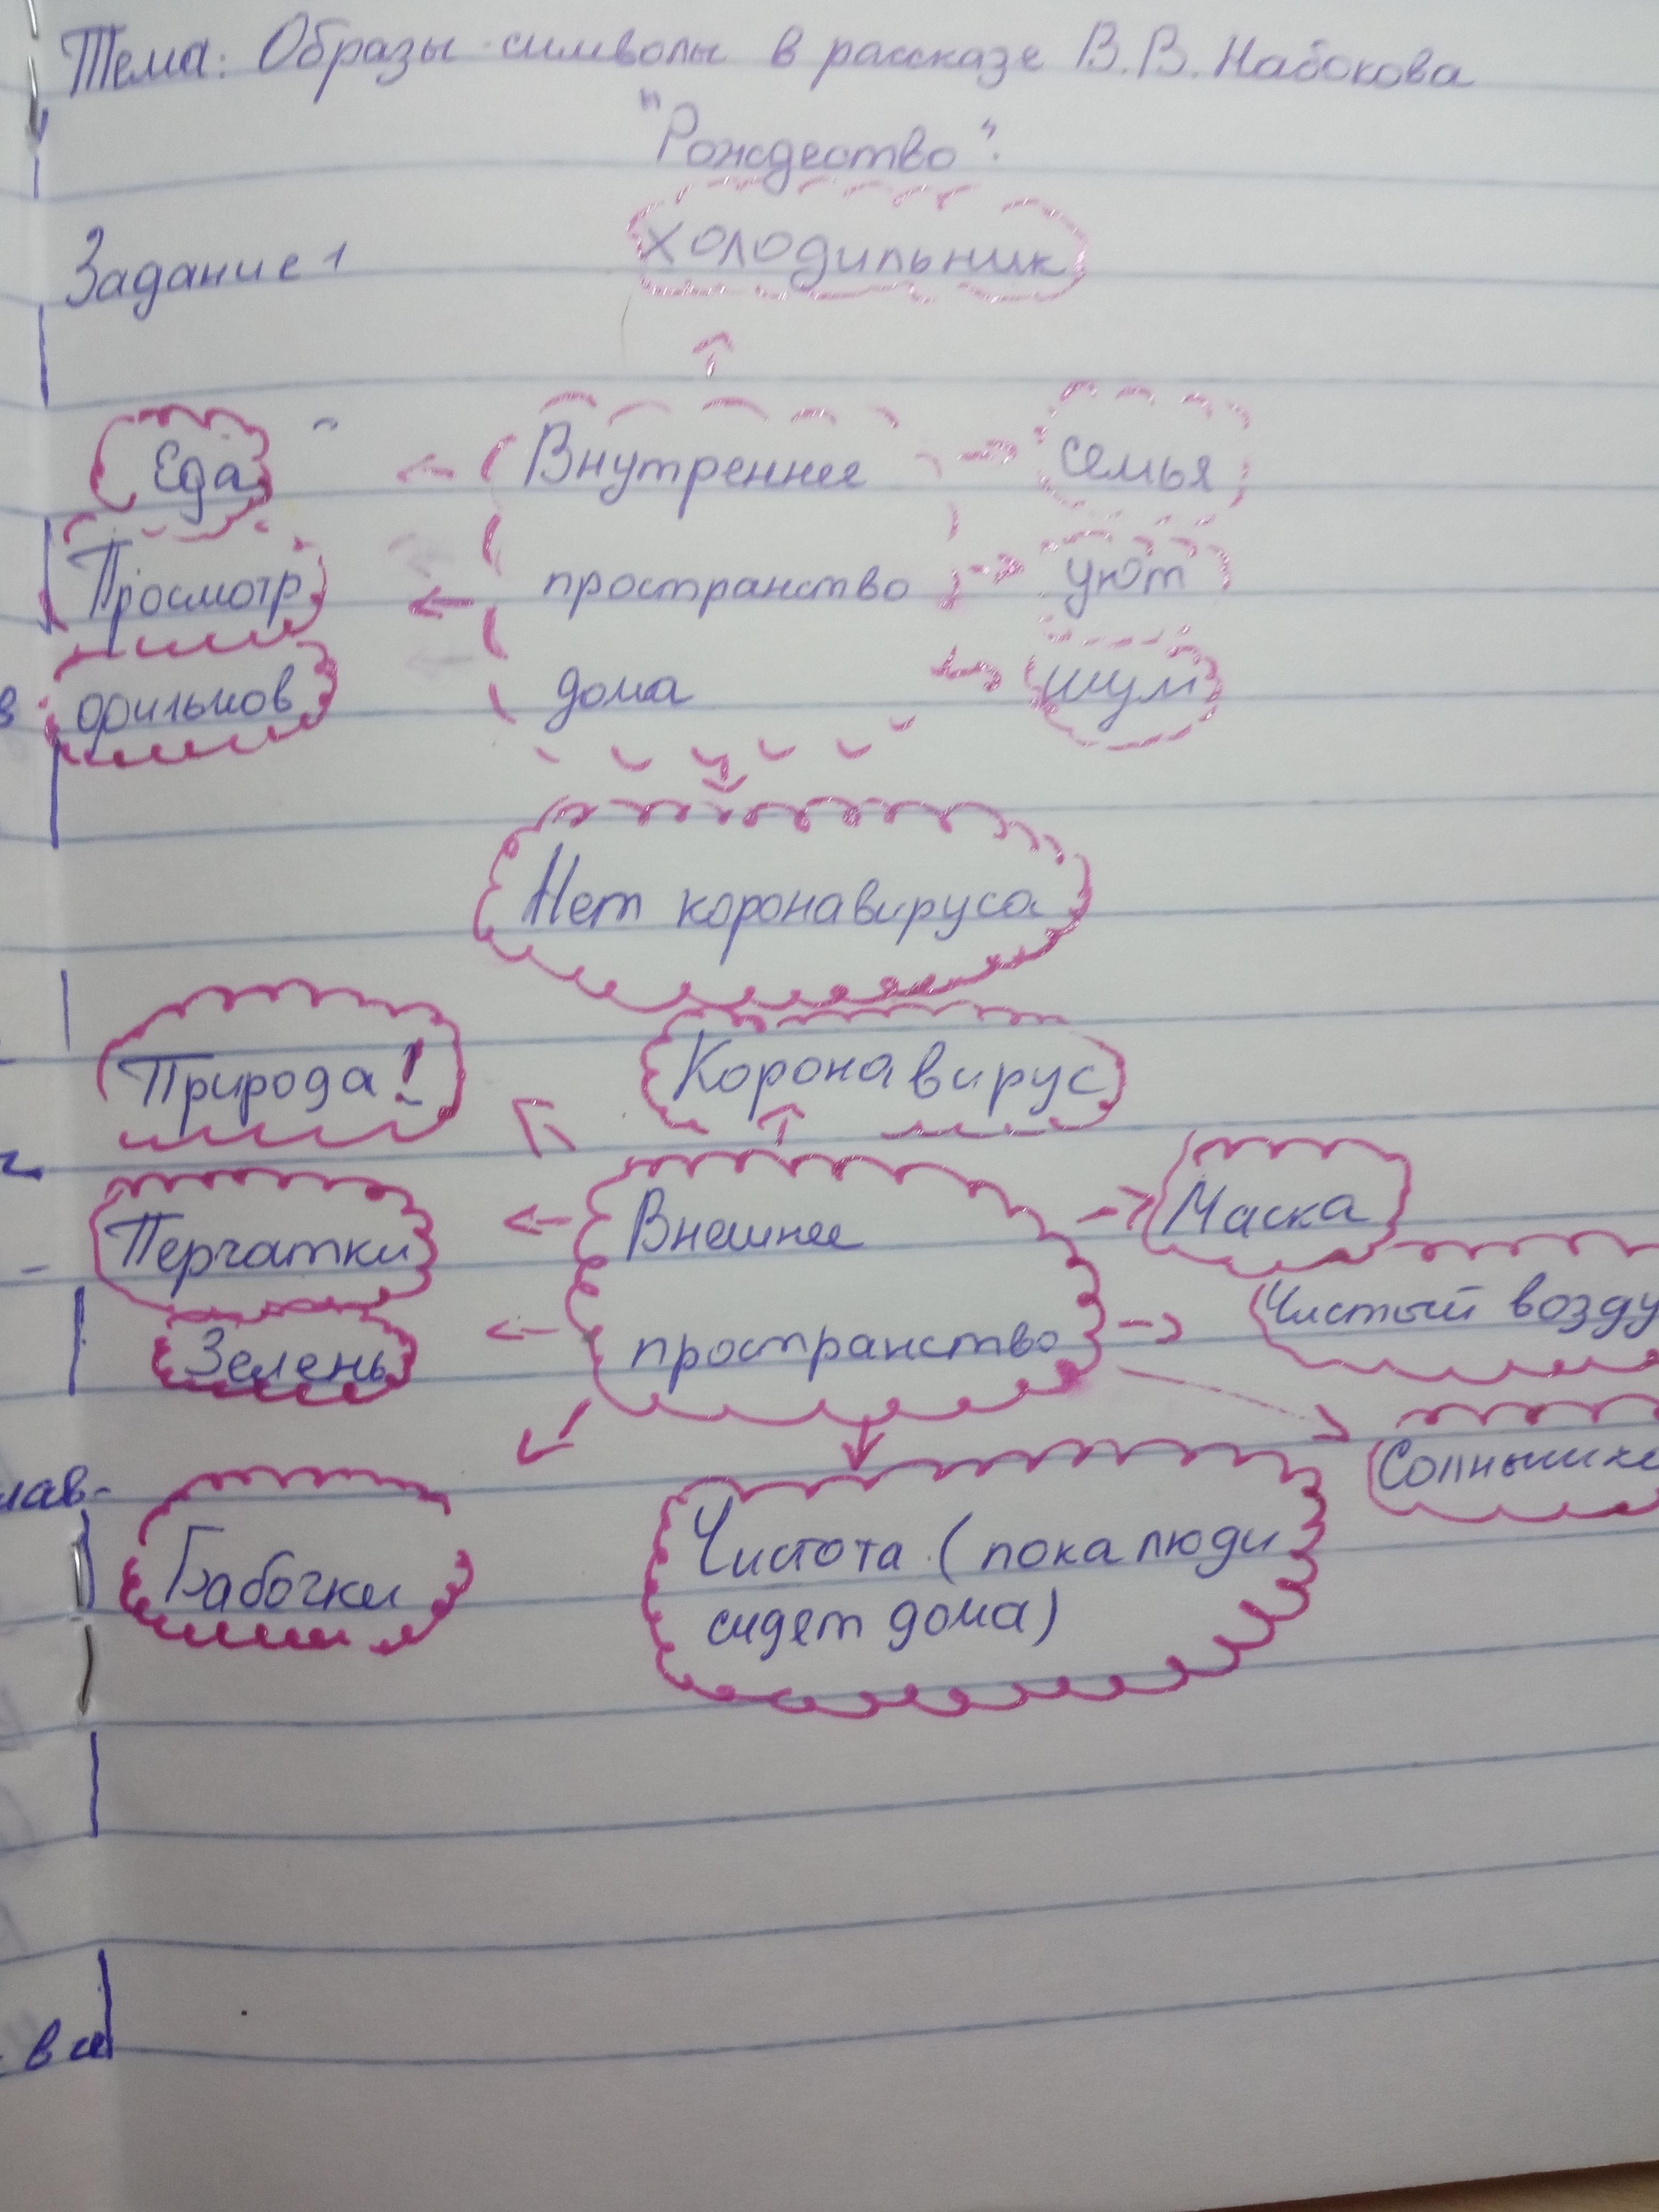 Тема: Образы-символы в рассказе В.В. Набокова
"Рождество".
Задание 1
холодильник
Еда
Внутреннее
семья
Просмотр
пространство
уют
фильмов
дома
шум
в
Нет коронавируса
Природа!
Коронавирус
Перчатки
Внешнее
Маска
Зелень
пространство
Чистый возду
Солнышко
лав-
Бабочки
Чистота (пока люди
сидят дома)